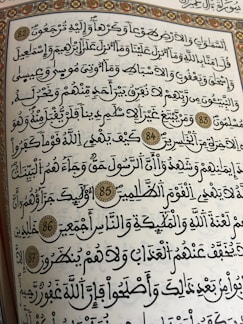 سورة آل عمران
السَّمَٰوَٰتِ وَالْأَرْضِ طَوْعًا وَكَرْهًا وَإِلَيْهِ يُرْجَعُونَ
قُلْ ءَامَنَّا بِاللَّهِ وَمَا أُنزِلَ عَلَيْنَا وَمَا أُنزِلَ عَلَىٰ إِبْرَٰهِيمَ وَإِسْمَٰعِيلَ
وَإِسْحَٰقَ وَيَعْقُوبَ وَالْأَسْبَاطِ وَمَا أُوتِيَ مُوسَىٰ وَعِيسَىٰ
وَالنَّبِيُّونَ مِن رَّبِّهِمْ لَا نُفَرِّقُ بَيْنَ أَحَدٍ مِّنْهُمْ وَنَحْنُ لَهُ
مُسْلِمُونَ 84 وَمَن يَبْتَغِ غَيْرَ الْإِسْلَٰمِ دِينًا فَلَن يُقْبَلَ مِنْهُ وَهُوَ
مِنَ الْخَٰسِرِينَ 84 كَيْفَ يَهْدِي اللَّهُ قَوْمًا كَفَرُوا
بَعْدَ إِيمَٰنِهِمْ وَشَهِدُوا أَنَّ الرَّسُولَ حَقٌّ وَجَاءَهُمُ الْبَيِّنَٰتُ
لَا يَهْدِي الْقَوْمَ الظَّٰلِمِينَ 85 أُولَٰئِكَ جَزَاؤُهُمْ أَنَّ
عَلَيْهِمْ لَعْنَةَ اللَّهِ وَالْمَلَٰئِكَةِ وَالنَّاسِ أَجْمَعِينَ 86 خَٰلِدِينَ
لَا يُخَفَّفُ عَنْهُمُ الْعَذَابُ وَلَا هُمْ يُنظَرُونَ 87 إِلَّا
تَابُوا مِن بَعْدِ ذَٰلِكَ وَأَصْلَحُوا فَإِنَّ اللَّهَ غَفُورٌ رَّحِيمٌ